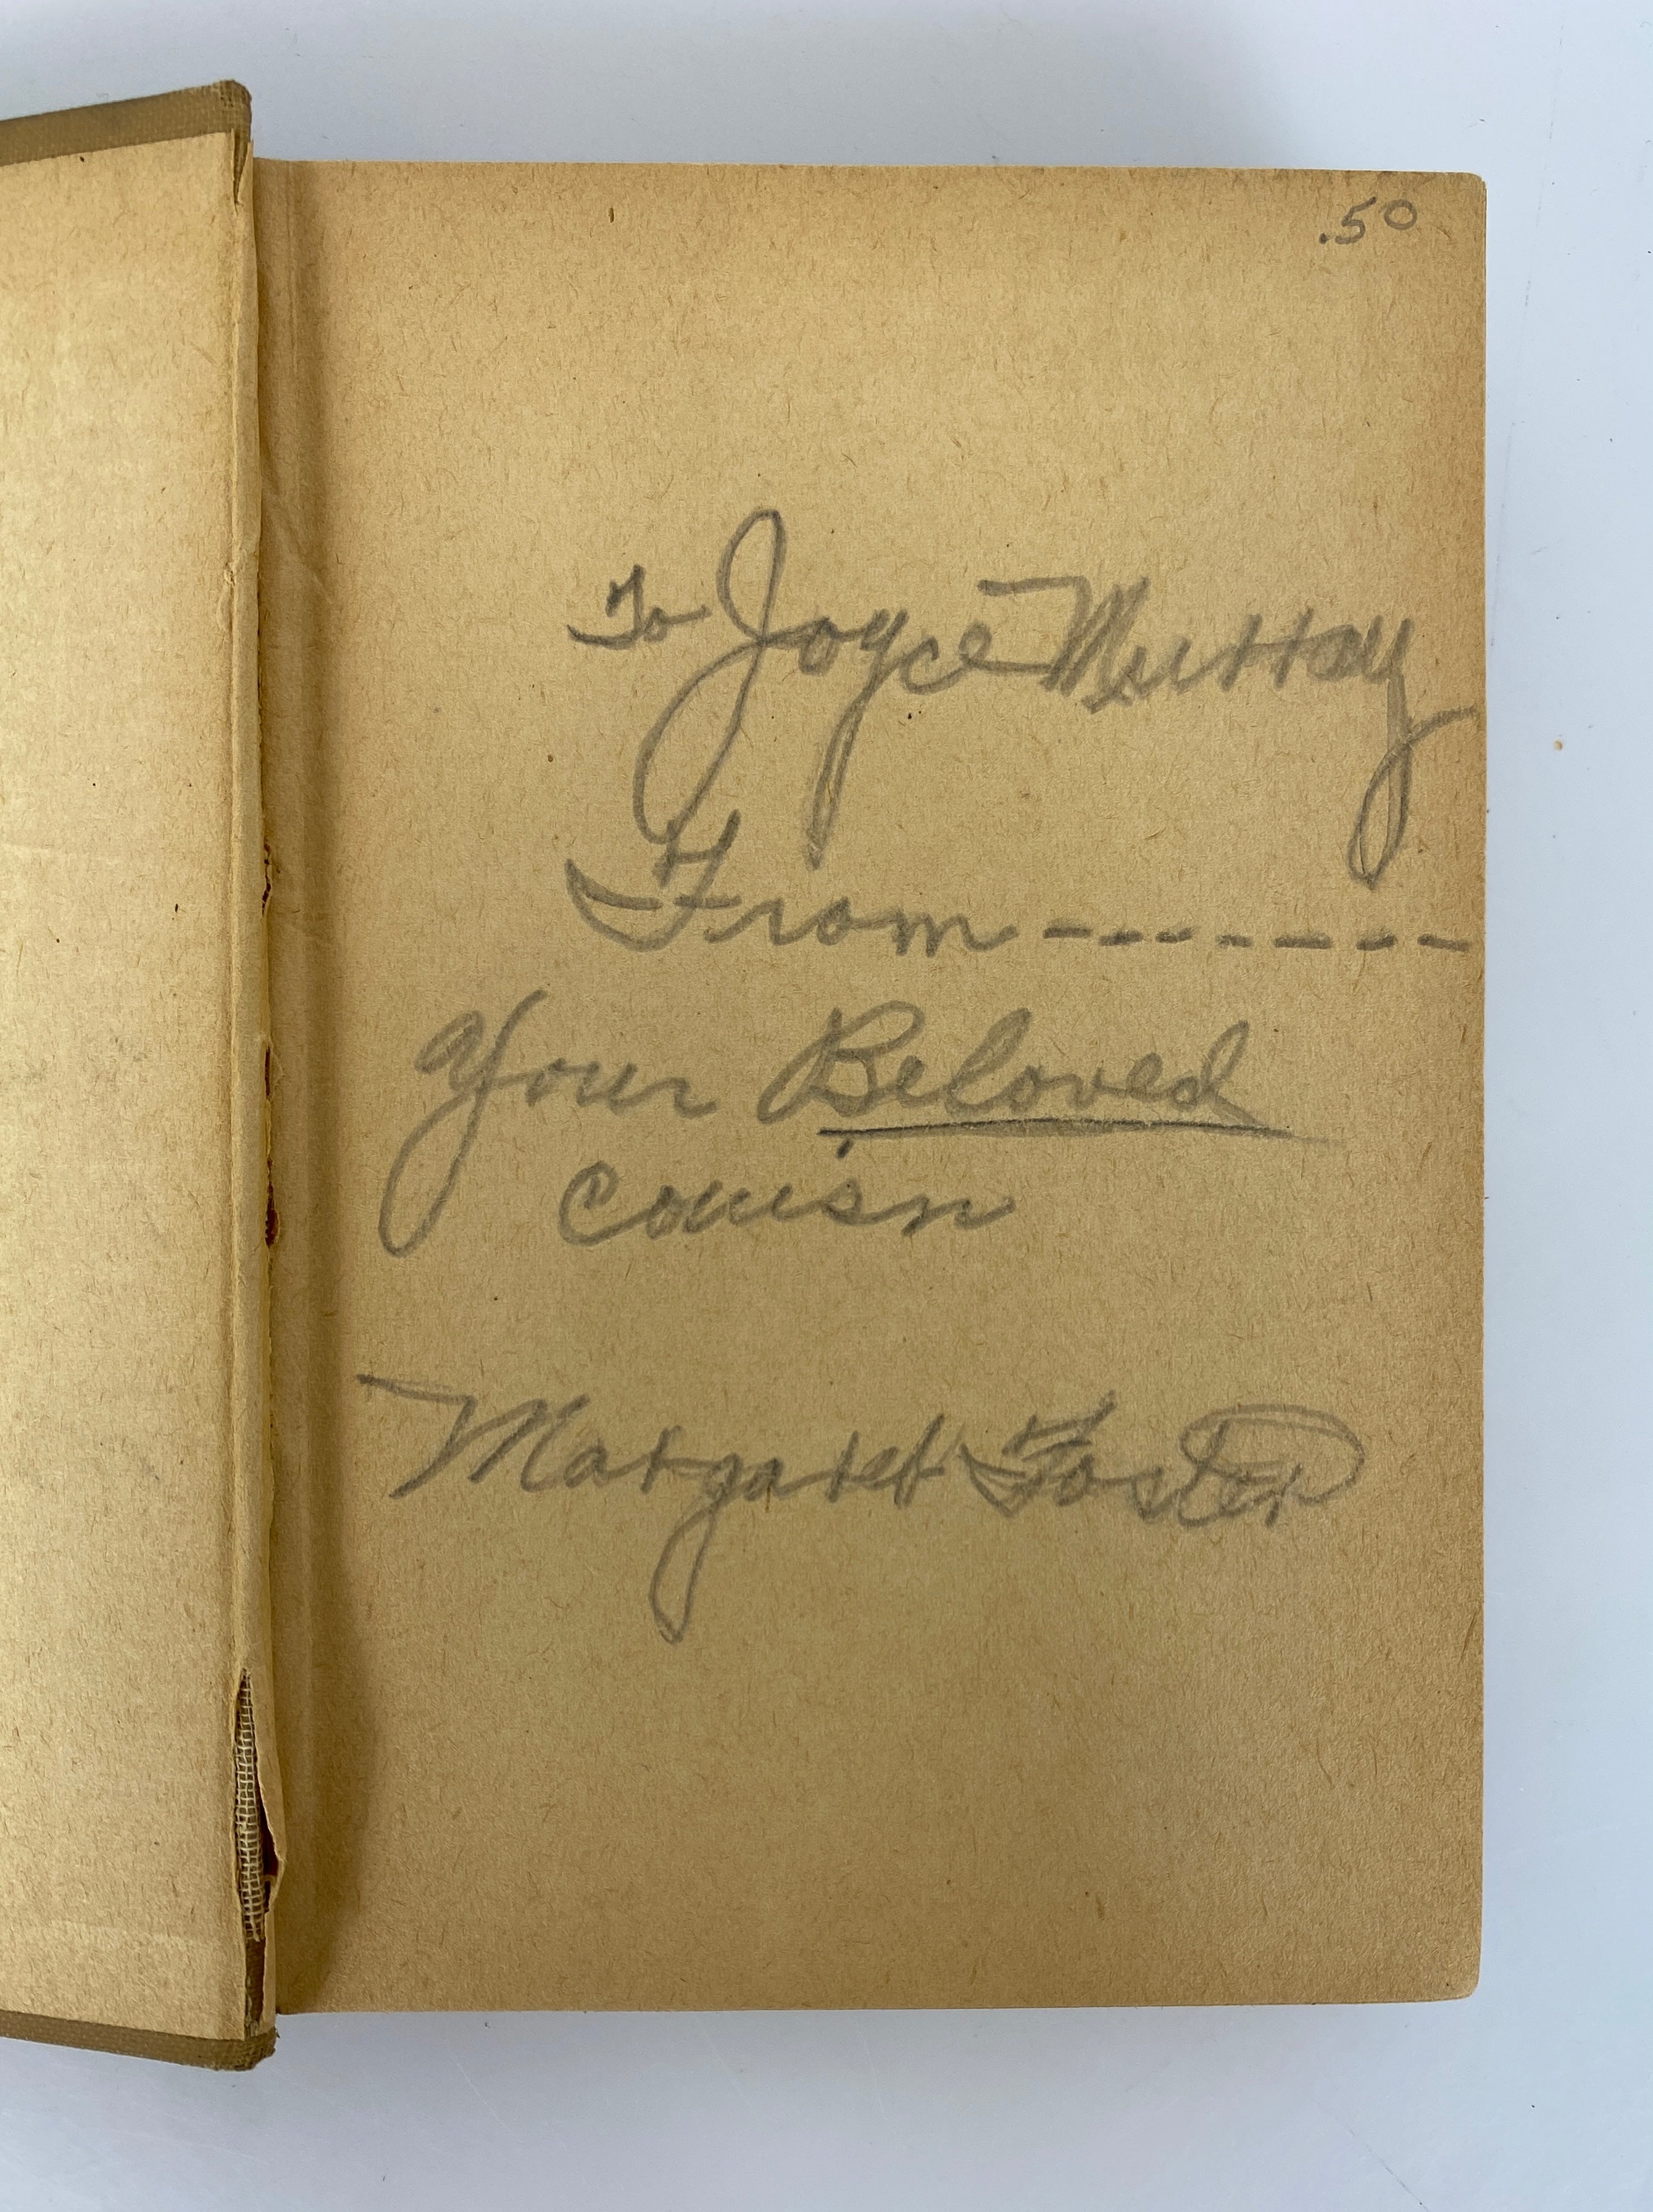 .50
To Joyce Murray
From - - - - - - - -
Your Beloved
Couisn
Margaret Foster